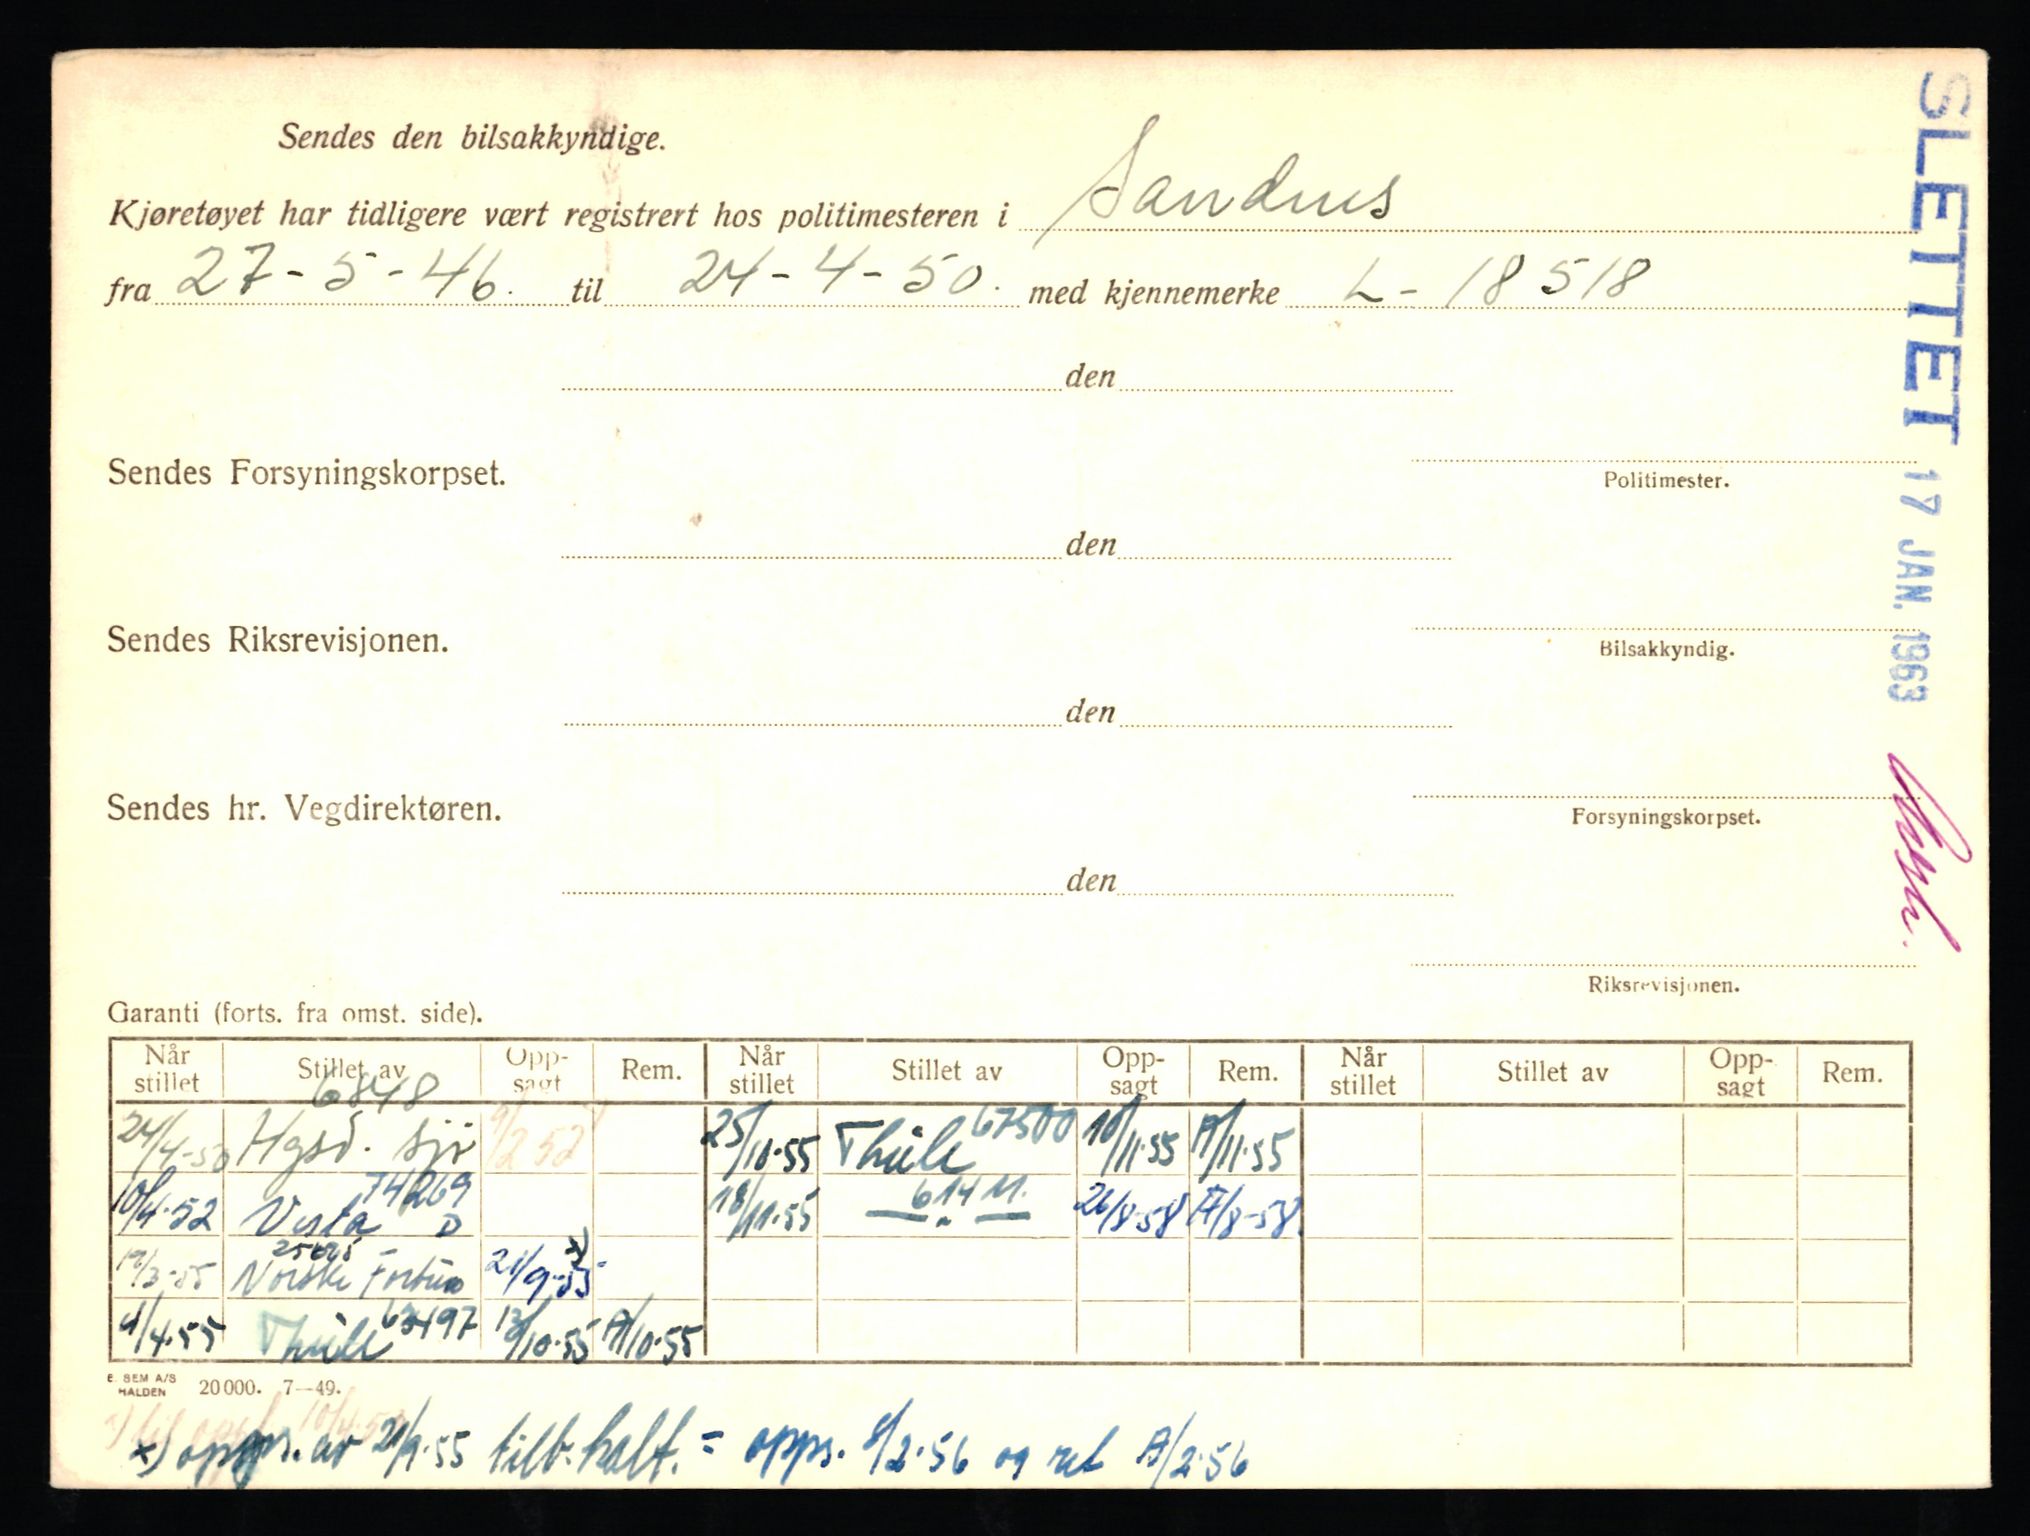 Sendes den bilsakkyndige.
Kjøretøyet har tidligere vært registrert hos politimesteren i Sandnes
fra 27-5-46. til 24-4-50. med kjennemerke L-18518
den
Sendes Forsyningskorpset.
Politimester.
den
Sendes Riksrevisjonen.
Bilsakkyndig.
den
Sendes hr. Vegdirektøren.
Forsyningskorpset.
den
Riksrevisjonen.
SLETTET 17 JAN. 1963
Garanti (forts. fra omst. side).
Når stillet Stillet av Opp-sagt Rem. Når stillet Stillet av Opp-sagt Rem. Når stillet Stillet av Opp-sagt Rem.
24/4-50 6848 Hgsd. sjø 9/2 52 25/10-55 Thule 67500 10/11-55 A/11-55
10/4-52 Vesta 74269 D 18/11-55 — " — 614 M. 26/8-58 A/8-58.
Norske Fortuna 21/9-55 x)
4/4-55 Thule 63497 13/10-55 A/10-55
E. SEM A/S HALDEN 20000. 7—49.
x) opps. av 21/9-55 tilb.kalt. = opps. 8/2-56 og ret A/2-56